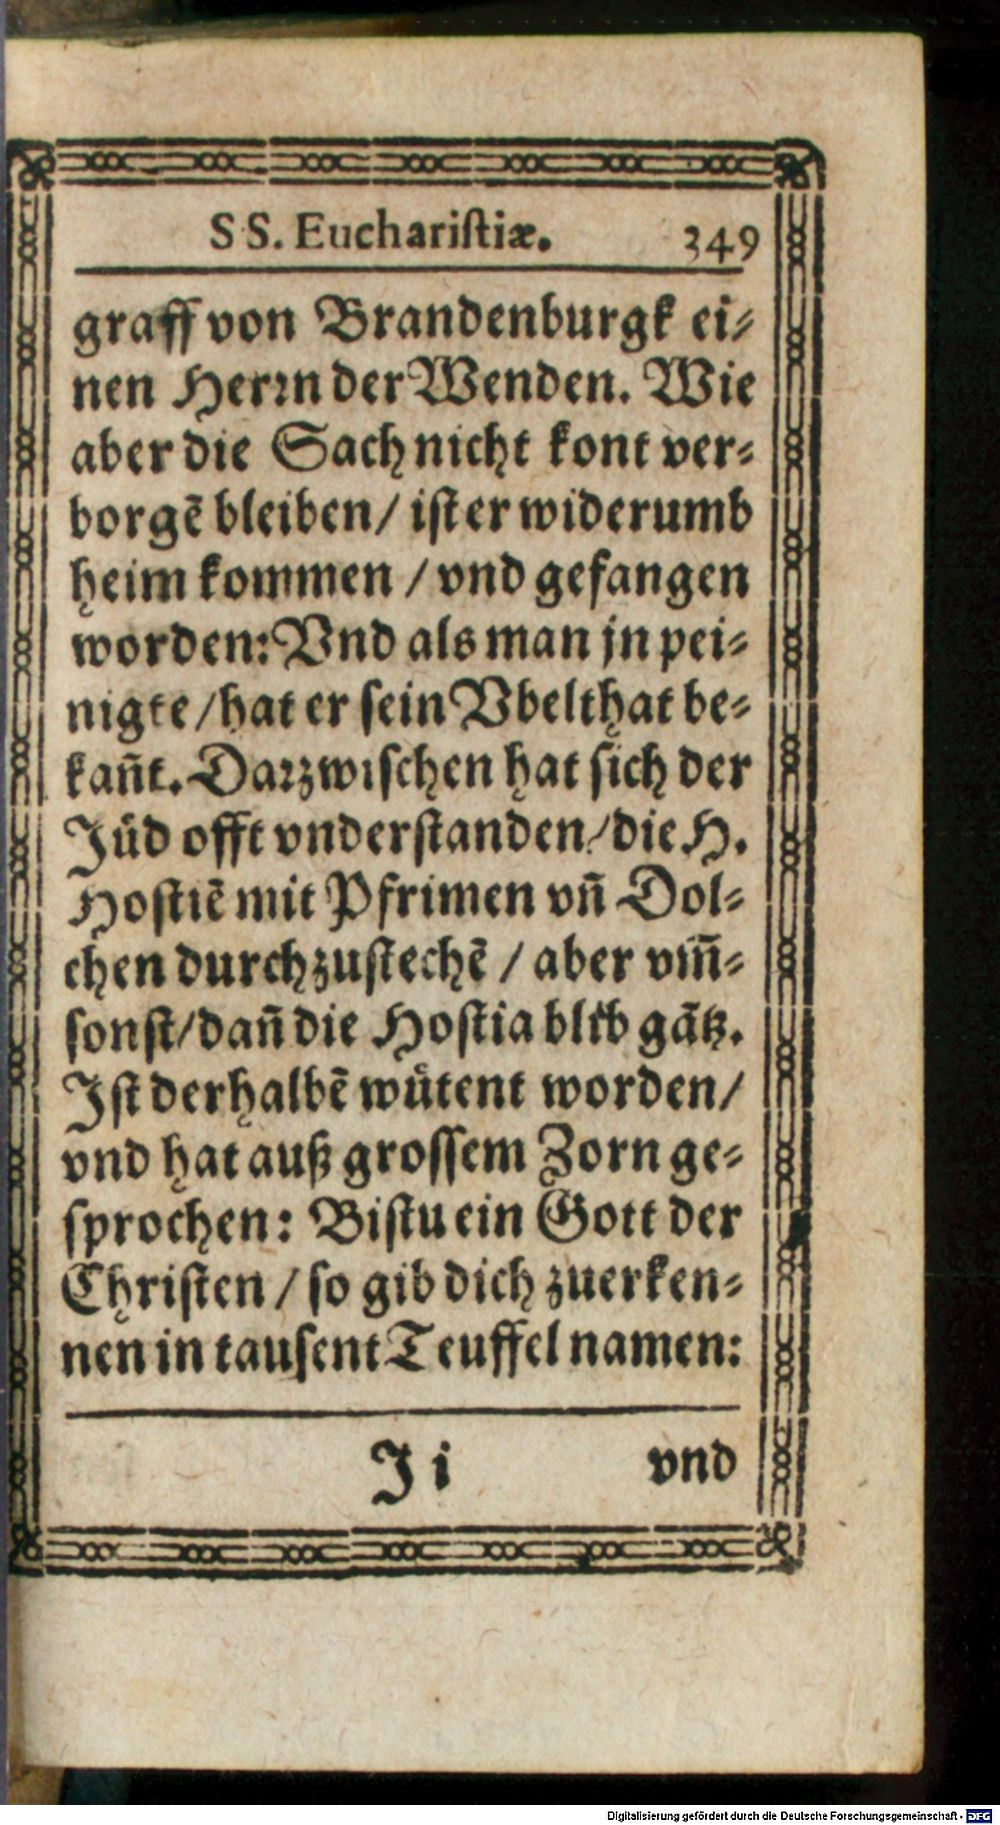 SS. Euchariſtiæ. 349
graff von Brandenburgk ei⸗
nen Herꝛn der Wenden. Wie
aber die Sach nicht kont ver⸗
borgẽ bleiben/ iſt er widerumb
heim kommen / vnd gefangen
worden: Vnd als man jn pei⸗
nigte /hat er ſein Vbelthat be⸗
kañt. Darzwiſchen hat ſich der
Jüd offt vnderſtanden/die H.
Hoſtiẽ mit Pfrimen vñ Dol⸗
chen durchzuſtechẽ / aber vm̃⸗
ſonſt/dañ die Hoſtia blib gãtz.
Iſt derhalbẽ wütent worden/
vnd hat auß groſſem Zorn ge⸗
ſprochen: Biſtu ein Gott der
Chriſten / ſo gib dich zuerken⸗
nen in tauſent Teuffel namen:
Ji vnd
Digitalisierung gefördert durch die Deutsche Forschungsgemeinschaft - DFG